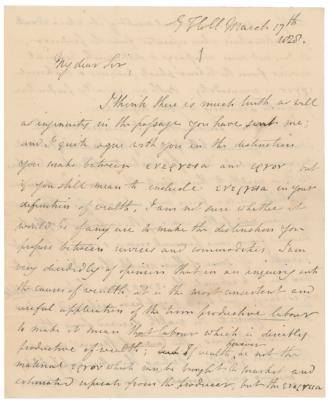 E I Coll March 17th
1828.
My dear Sir
I think there is much truth as well
as ingenuity in the passage you have sent me;
and I quite agree with you in the distinction
you make between ενεργεια and εργον but
if you still mean to include ενεργεια in your
definition of wealth, I am not sure whether it
would be of any use to make the distinction you
propose between services and commodities. I am
very decidedly of opinion that in an enquiry into
the causes of wealth it is the most consistent and
useful application of the term productive labour
to make it mean that labour which is directly
productive of wealth; if wealth, however, is not the
material εργον which can be brought to market and
estimated separate from the producer, but the ενεργεια